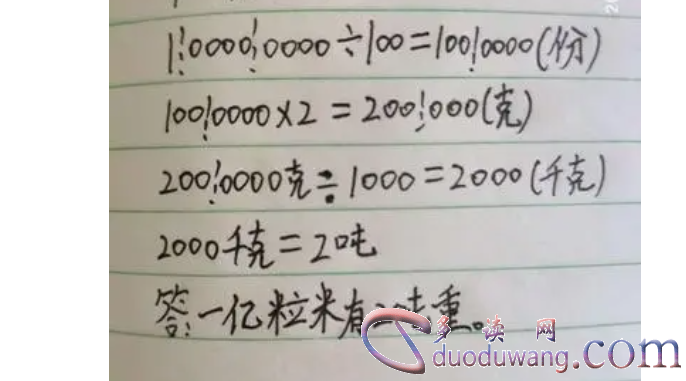 1¦0000¦0000÷100=100¦0000(份)
100¦0000×2=200¦000(克)
200¦0000克÷1000=2000(千克)
2000千克=2吨
答:一亿粒米有2吨重。
多读网
duoduwang.com